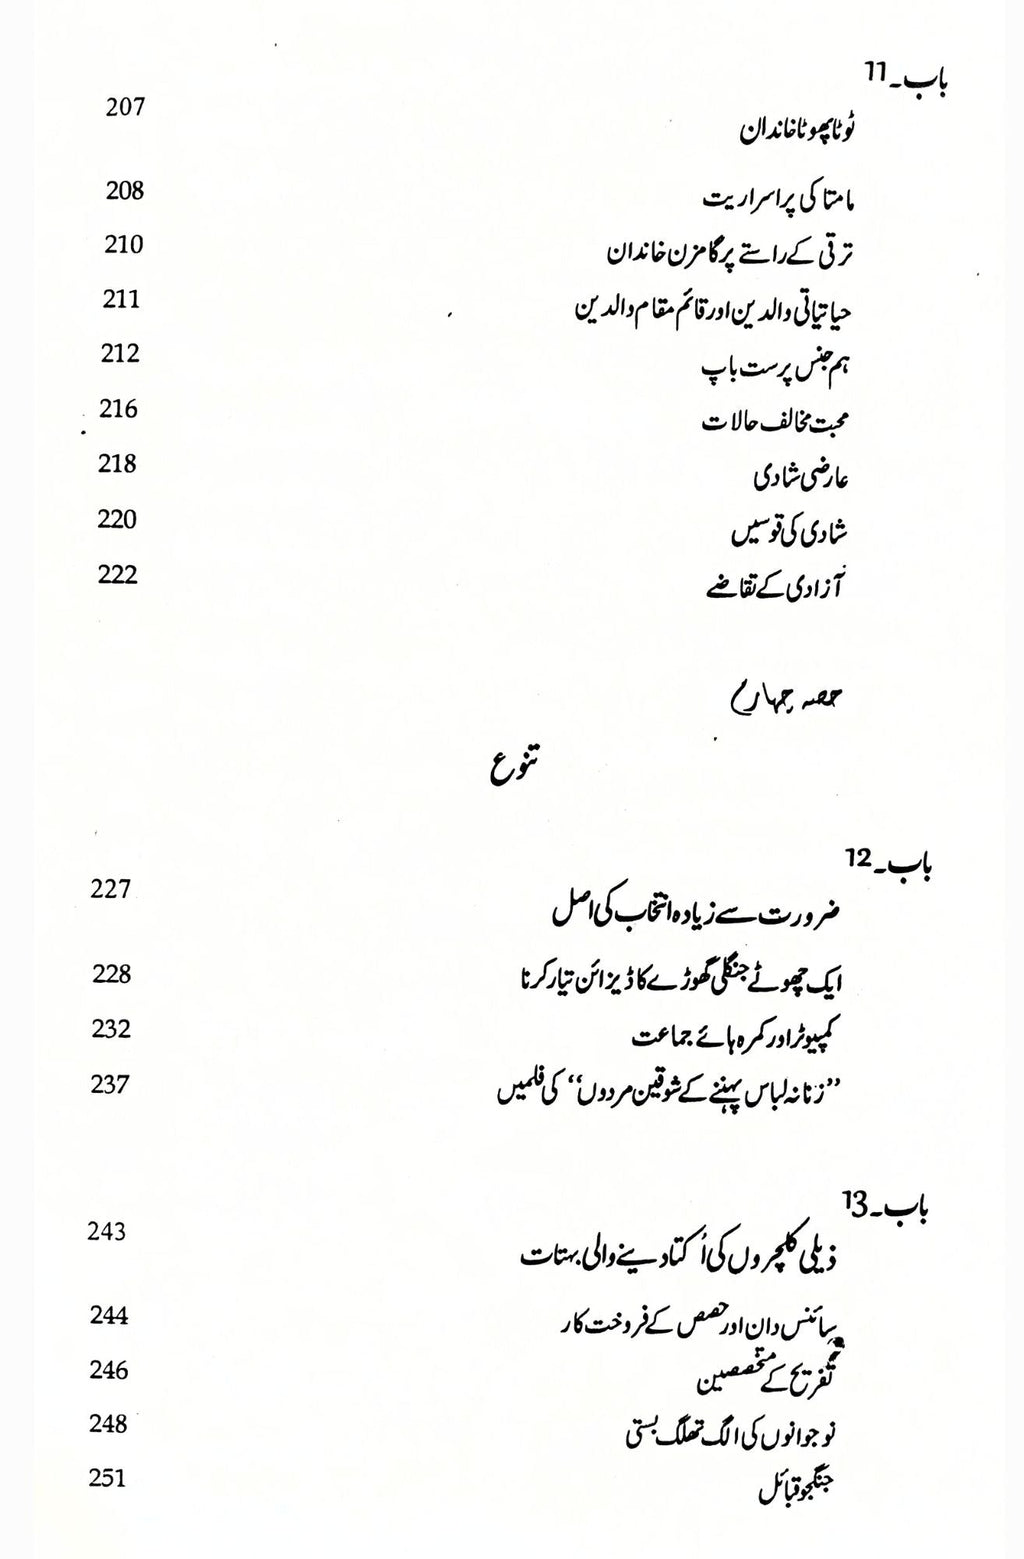 باب۔11
ٹوٹا پھوٹا خاندان 207
مامتا کی پراسراریت 208
ترقی کے راستے پر گامزن خاندان 210
حیاتیاتی والدین اور قائم مقام والدین 211
ہم جنس پرست باپ 212
محبت مخالف حالات 216
عارضی شادی 218
شادی کی قوسیں 220
آزادی کے تقاضے 222
حصہ چہارم
تنوع
باب۔12
ضرورت سے زیادہ انتخاب کی اصل 227
ایک چھوٹے جنگلی گھوڑے کا ڈیزائن تیار کرنا 228
کمپیوٹر اور کمرہ ہائے جماعت 232
”زنانہ لباس پہننے کے شوقین مردوں“ کی فلمیں 237
باب۔13
ذیلی کلچروں کی اُکتا دینے والی بہتات 243
سائنس دان اور حصص کے فروخت کار 244
تفریح کے متخصصین 246
نوجوانوں کی الگ تھلگ بستی 248
جنگجو قبائل 251